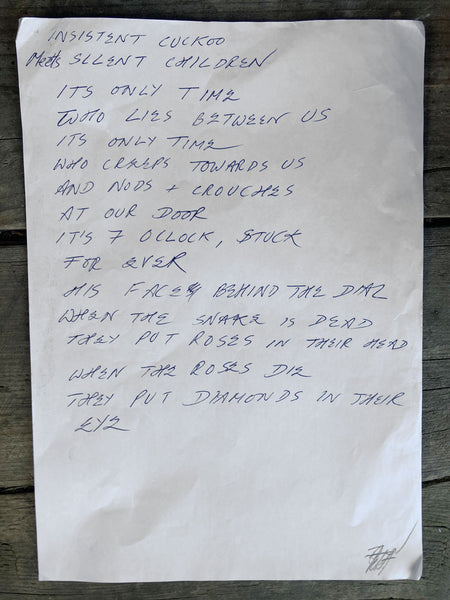 INSISTENT CUCKOO
Meets SILENT CHILDREN
ITS ONLY TIME
WHO LIES BETWEEN US
ITS ONLY TIME
WHO CREEPS TOWARDS US
AND NODS + CROUCHES
AT OUR DOOR
IT'S 7 OCLOCK, STUCK
FOR EVER
HIS FACE BEHIND THE DIAL
WHEN THE SNAKE IS DEAD
THEY PUT ROSES IN THEIR HEAD
WHEN THE ROSES DIE
THEY PUT DIAMONDS IN THEIR
EYE